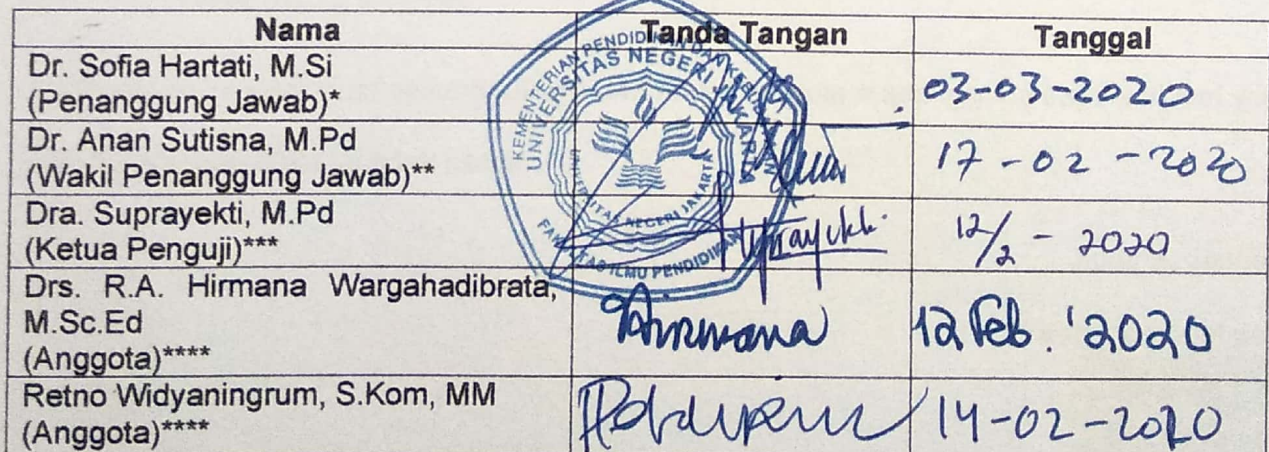 Nama Tanda Tangan Tanggal
Dr. Sofia Hartati, M.Si
(Penanggung Jawab)* 03-03-2020
Dr. Anan Sutisna, M.Pd
(Wakil Penanggung Jawab)** 17-02-2020
Dra. Suprayekti, M.Pd
(Ketua Penguji)*** 12/2 - 2020
Drs. R.A. Hirmana Wargahadibrata,
M.Sc.Ed
(Anggota)**** Hirmana 12 Feb. '2020
Retno Widyaningrum, S.Kom, MM
(Anggota)**** 14-02-2020
KEMENTERIAN PENDIDIKAN DAN
UNIVERSITAS NEGERI JAKARTA
UNIVERSITAS NEGERI JAKARTA
FAKULTAS ILMU PENDIDIKAN